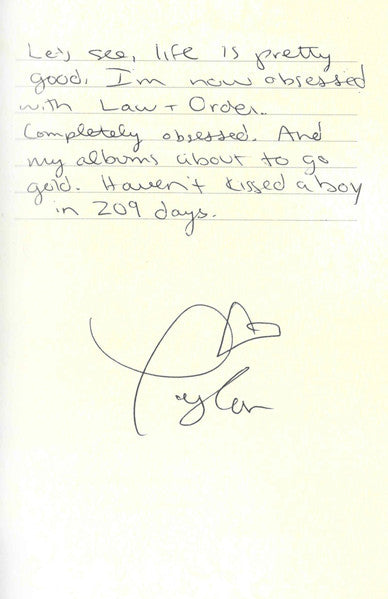 Let's see, life is pretty
good. I'm now obsessed
with Law + Order.
Completely obsessed. And
my albums about to go
gold. Haven't kissed a boy
in 209 days.
Taylor